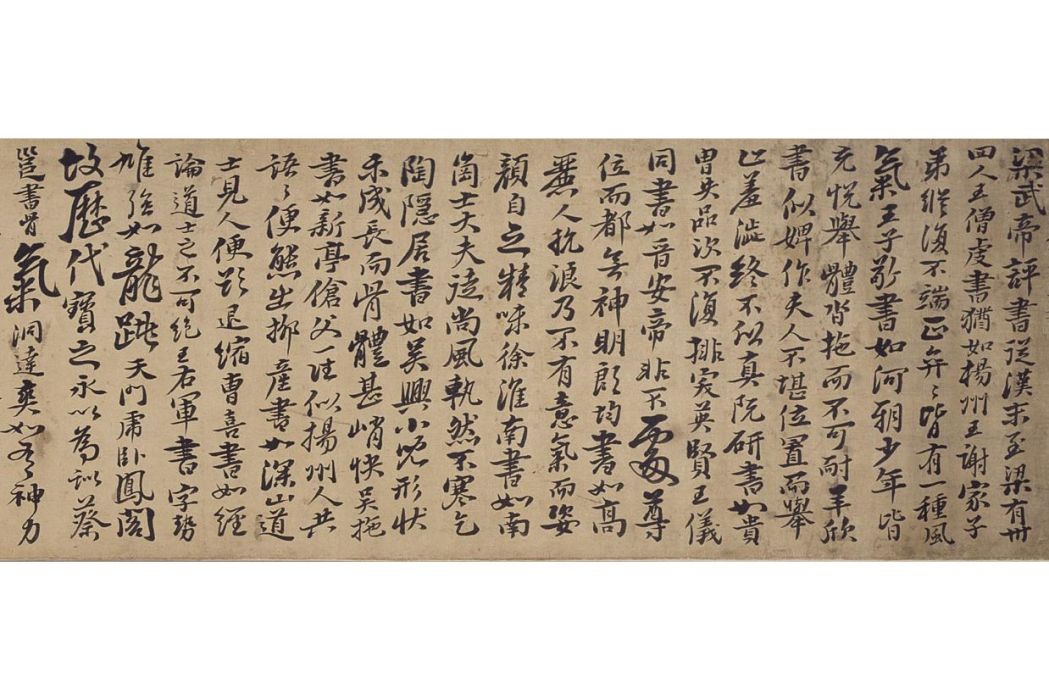 梁武帝評書從漢末至梁有卅
四人王僧虔書猶如揚州王謝家子
弟縱復不端正奕々皆有一種風
氣王子敬書如河朔少年皆
充悅舉體沓拖而不可耐羊欣
書似婢作夫人不堪位置而舉
止羞澁終不似真阮研書如貴
胄失品次不復排突英賢王儀
同書如晉安帝非不處尊
位而都無神明殷均書如高
麗人抗浪乃不有意氣而姿
顏自之精味徐淮南書如南
崗士大夫徒尚風軌然不寒乞
陶隱居書如吳興小兒形狀
未成長而骨體甚峭快吳拖
書如新亭傖父一往似揚州人共
語々便態出柳產書如深山道
士見人便欲退縮曹喜書如經
論道士之不可絕王右軍書字勢
雄強如龍跳天門虎臥鳳閣
故歷代寶之永以為訓蔡
邕書骨氣洞達爽如有神力